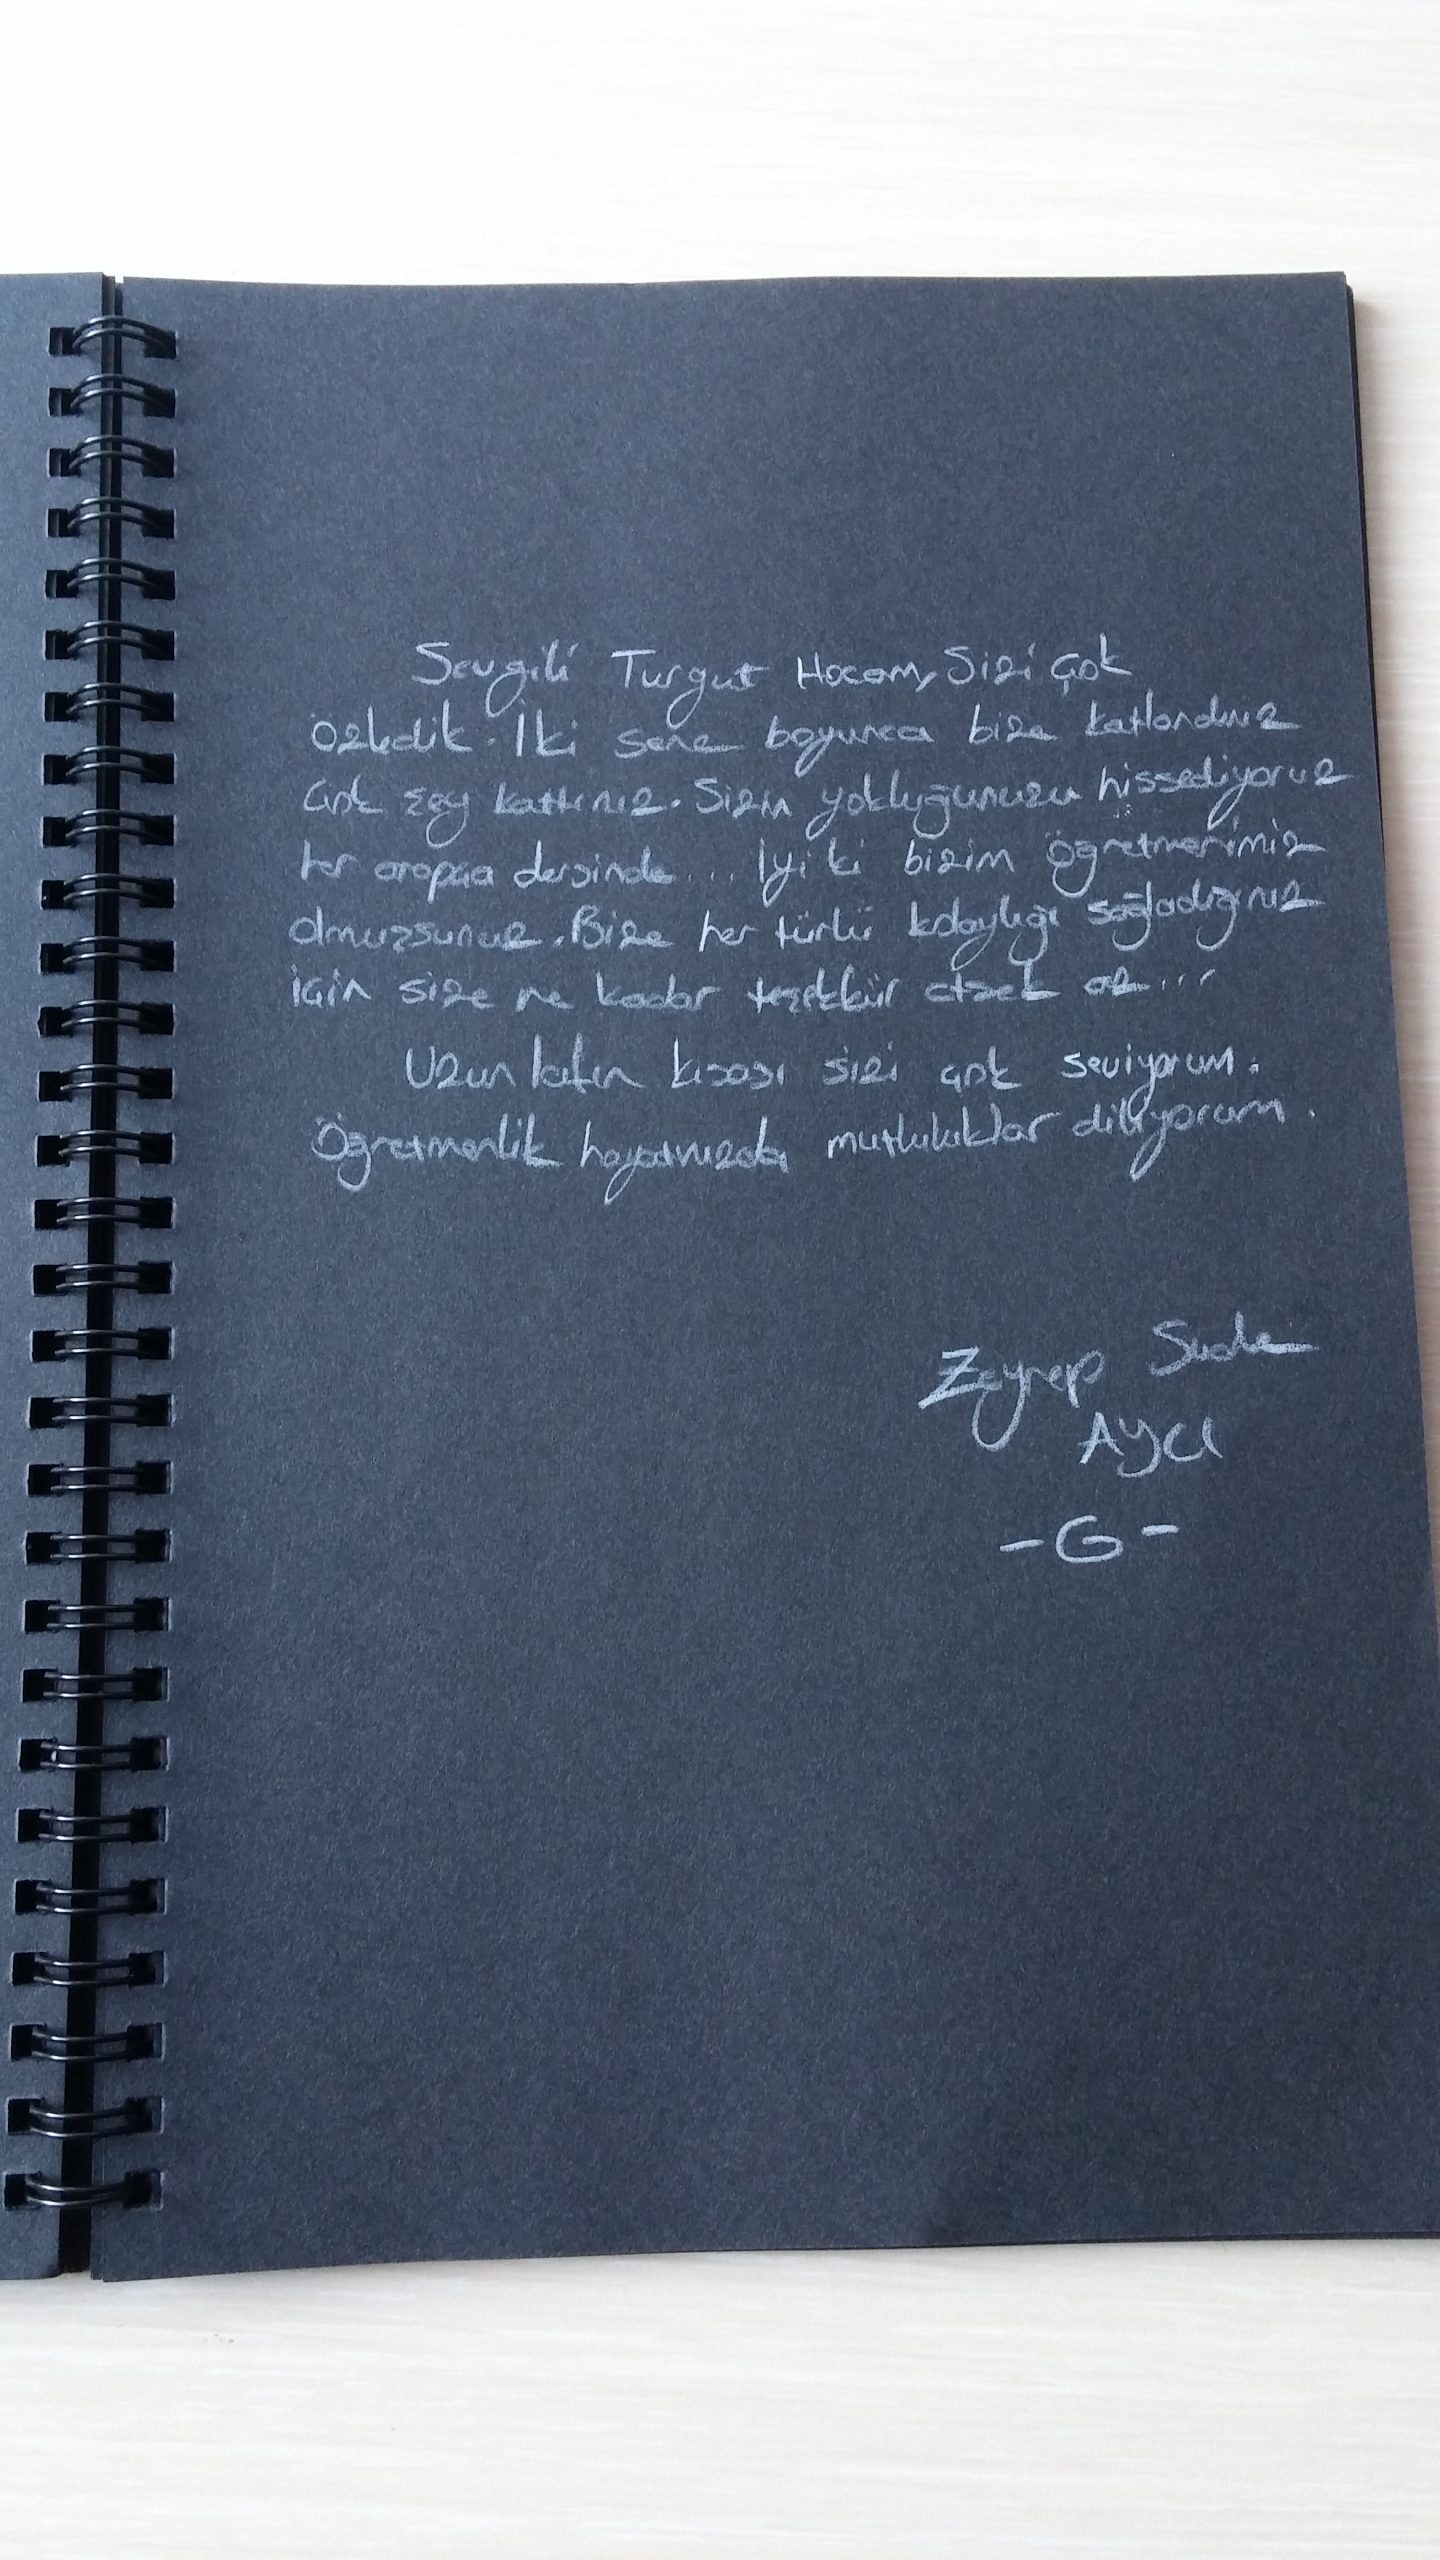 Sevgili Turgut Hocam, Sizi çok
özledik. İki sene boyunca bize katlandınız
çok şey kattınız. Sizin yokluğunuzu hissediyoruz
her arapça dersinde... İyi ki bizim öğretmenimiz
olmuşsunuz. Bize her türlü kolaylığı sağladığınız
için size ne kadar teşekkür etsek az...
Uzun lafın kısası sizi çok seviyorum.
Öğretmenlik hayatınızda mutluluklar diliyorum.
Zeynep Sude
AYCI
-G-